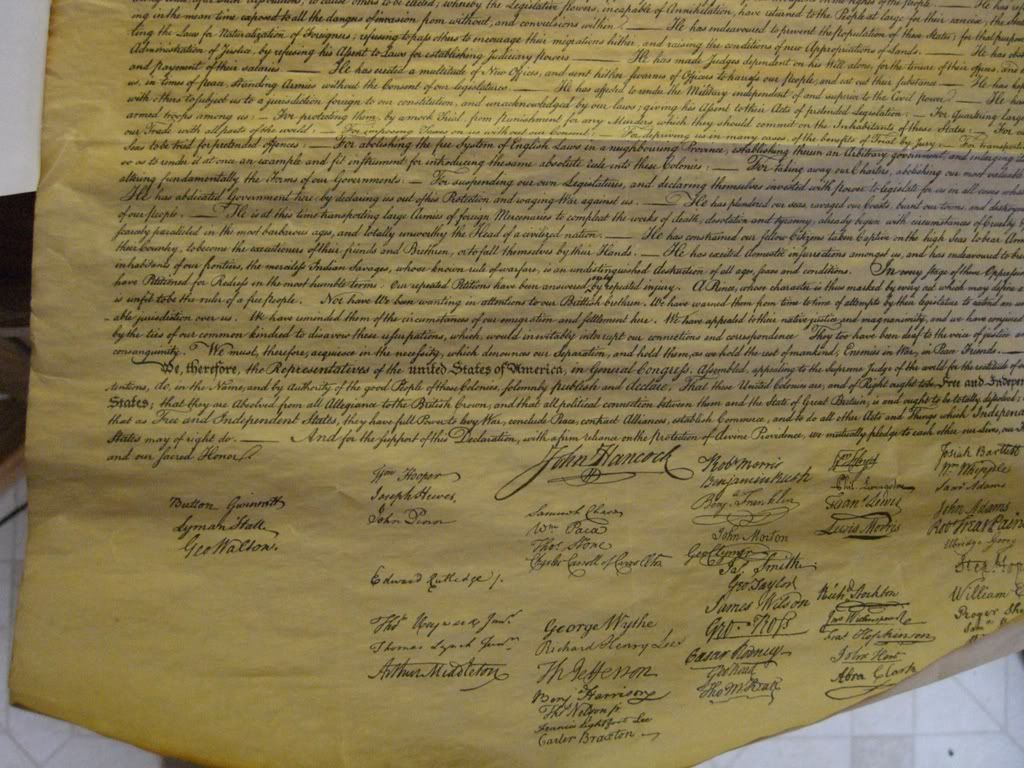 ing in the mean time exposed to all the dangers of invasion from without, and convulsions within. — He has endeavoured to prevent the population of these States; for that purpose
ling the Laws for Naturalization of Foreigners; refusing to pass others to encourage their migrations hither, and raising the conditions of new Appropriations of Lands. — He has
Administration of Justice, by refusing his Assent to Laws for establishing Judiciary powers. — He has made Judges dependent on his Will alone, for the tenure of their offices, and
and payment of their salaries. — He has erected a multitude of New Offices, and sent hither swarms of Officers to harass our people, and eat out their substance. — He has
us, in times of peace, Standing Armies without the Consent of our legislatures. — He has affected to render the Military independent of and superior to the Civil power. — He has
with others to subject us to a jurisdiction foreign to our constitution, and unacknowledged by our laws; giving his Assent to their Acts of pretended Legislation: — For Quartering large
armed troops among us: — For protecting them, by a mock Trial, from punishment for any Murders which they should commit on the Inhabitants of these States: — For
our Trade with all parts of the world: — For imposing Taxes on us without our Consent: — For depriving us in many cases, of the benefits of Trial by Jury: — For
Seas to be tried for pretended offences: — For abolishing the free System of English Laws in a neighbouring Province, establishing therein an Arbitrary government, and enlarging
so as to render it at once an example and fit instrument for introducing the same absolute rule into these Colonies: — For taking away our Charters, abolishing our most valuable
altering fundamentally the Forms of our Governments: — For suspending our own Legislatures, and declaring themselves invested with power to legislate for us in all cases
He has abdicated Government here, by declaring us out of his Protection and waging War against us. — He has plundered our seas, ravaged our Coasts, burnt our towns, and
of our people. — He is at this time transporting large Armies of foreign Mercenaries to compleat the works of death, desolation and tyranny, already begun with circumstances of Cruelty
scarcely paralleled in the most barbarous ages, and totally unworthy the Head of a civilized nation. — He has constrained our fellow Citizens taken Captive on the high Seas to bear
their Country, to become the executioners of their friends and Brethren, or to fall themselves by their Hands. — He has excited domestic insurrections amongst us, and has endeavoured to
inhabitants of our frontiers, the merciless Indian Savages, whose known rule of warfare, is an undistinguished destruction of all ages, sexes and conditions. In every stage of these
have Petitioned for Redress in the most humble terms: Our repeated Petitions have been answered only by repeated injury. A Prince, whose character is thus marked by every act which may define
is unfit to be the ruler of a free people. Nor have We been wanting in attentions to our Brittish brethren. We have warned them from time to time of attempts by their legislature to extend an
able jurisdiction over us. We have reminded them of the circumstances of our emigration and settlement here. We have appealed to their native justice and magnanimity, and we have conjured
by the ties of our common kindred to disavow these usurpations, which, would inevitably interrupt our connections and correspondence. They too have been deaf to the voice of justice
consanguinity. We must, therefore, acquiesce in the necessity, which denounces our Separation, and hold them, as we hold the rest of mankind, Enemies in War, in Peace Friends. —
We, therefore, the Representatives of the united States of America, in General Congress, Assembled, appealing to the Supreme Judge of the world for the rectitude of
tentions, do, in the Name, and by Authority of the good People of these Colonies, solemnly publish and declare, That these United Colonies are, and of Right ought to be Free and
States; that they are Absolved from all Allegiance to the British Crown, and that all political connection between them and the State of Great Britain, is and ought to be totally dissolved;
that as Free and Independent States, they have full Power to levy War, conclude Peace, contract Alliances, establish Commerce, and to do all other Acts and Things which
States may of right do. — And for the support of this Declaration, with a firm reliance on the protection of divine Providence, we mutually pledge to each other our Lives, our
and our sacred Honor.
Button Gwinnett
Lyman Hall
Geo Walton.
Wm Hooper
Joseph Hewes,
John Penn
Edward Rutledge
Thos Heyward Junr.
Thomas Lynch Junr.
Arthur Middleton
John Hancock
Samuel Chase
Wm Paca
Thos Stone
Charles Carroll of Carrollton
George Wythe
Richard Henry Lee
Th Jefferson
Benj Harrison
Thos Nelson jr
Francis Lightfoot Lee
Carter Braxton
Robt Morris
Benjamin Rush
Benj Franklin
John Morton
Geo Clymer
Jas Smith
Geo Taylor
James Wilson
Geo Ross
Caesar Rodney
Geo Read
Tho M:Kean
Wm Floyd
Phil. Livingston
Frans Lewis
Lewis Morris
Richd Stockton
Jno Witherspoon
Fras Hopkinson
John Hart
Abra Clark
Josiah Bartlett
Wm Whipple
Saml Adams
John Adams
Robt Treat Paine
Elbridge Gerry
Step. Hop
William
Roger Sh